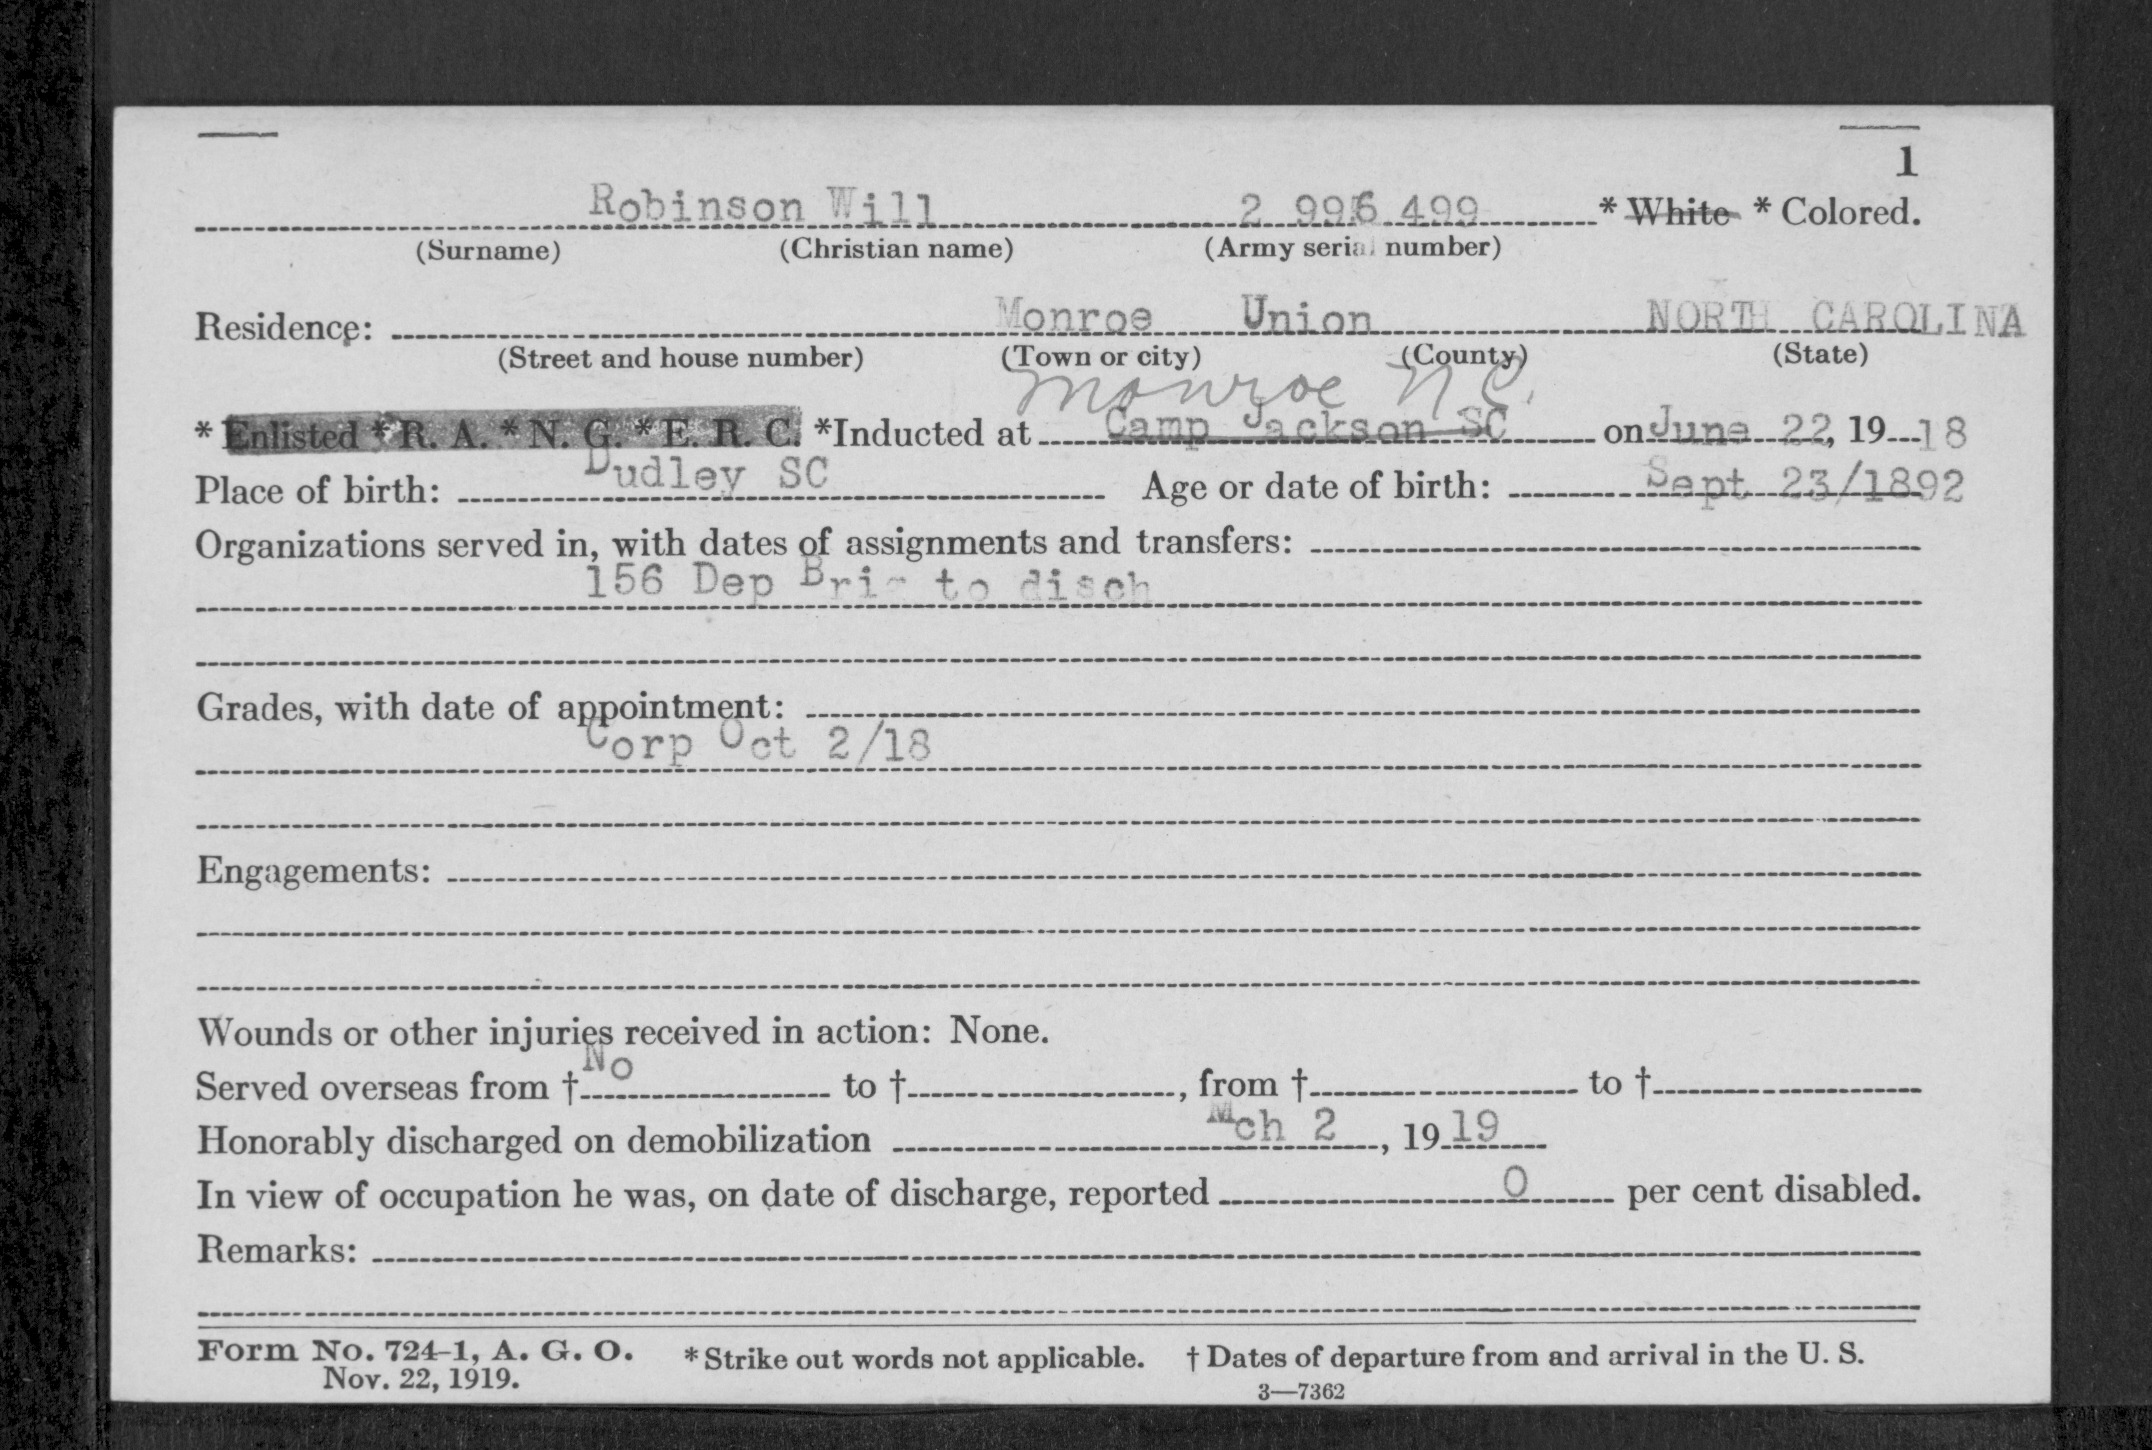 1
Robinson Will 2 996 499 * White * Colored.
(Surname) (Christian name) (Army serial number)
Residence: Monroe Union NORTH CAROLINA
(Street and house number) (Town or city) (County) (State)
Monroe N.C.
* Enlisted * R. A. * N. G. * E. R. C. *Inducted at Camp Jackson SC on June 22, 19 18
Place of birth: Dudley SC Age or date of birth: Sept 23/1892
Organizations served in, with dates of assignments and transfers:
156 Dep Brig to disch
Grades, with date of appointment:
Corp Oct 2/18
Engagements:
Wounds or other injuries received in action: None.
Served overseas from † No to †, from † to †
Honorably discharged on demobilization Mch 2, 19 19
In view of occupation he was, on date of discharge, reported 0 per cent disabled.
Remarks:
Form No. 724-1, A. G. O. * Strike out words not applicable. † Dates of departure from and arrival in the U. S.
Nov. 22, 1919. 3—7362